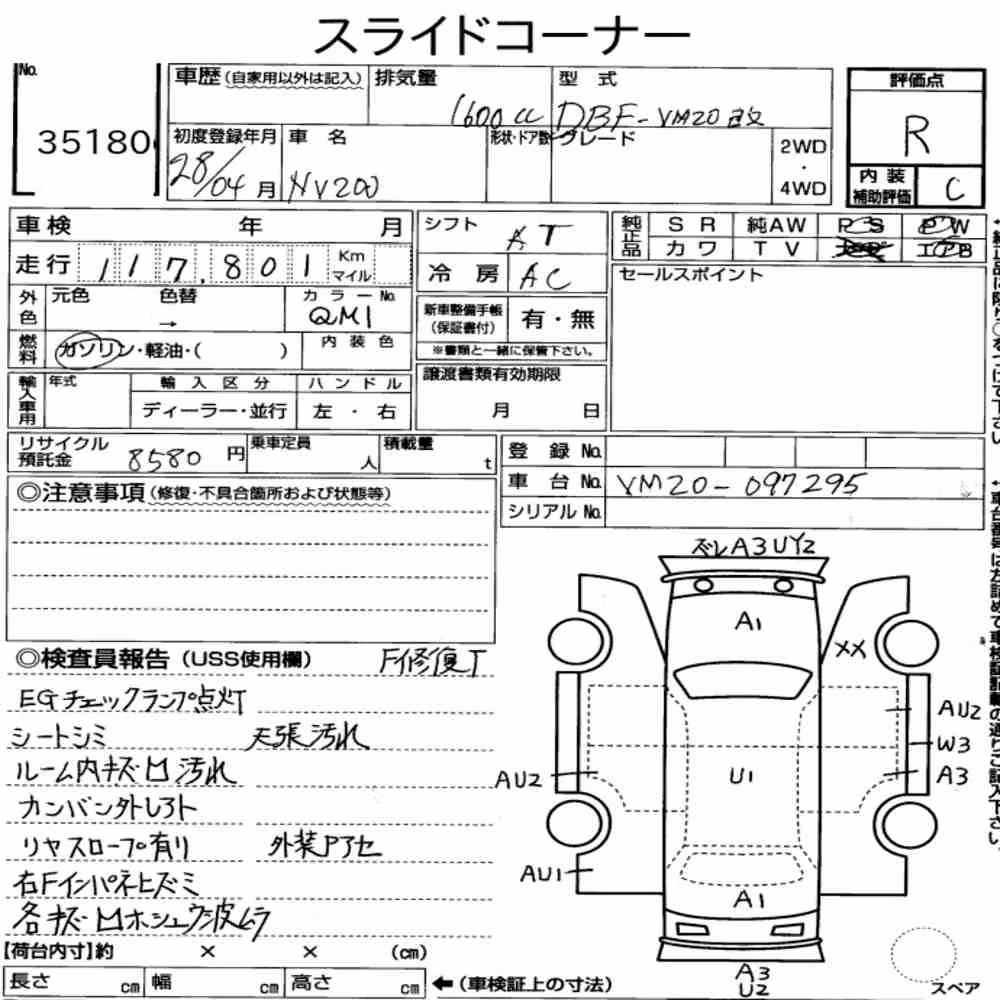 スライドコーナー
No.
35180
車歴 (自家用以外は記入) 排気量 型式
1600 cc DBF-VM20改
初度登録年月 車名 形状・ドア数 グレード
28/04月 NV200
2WD
・
4WD
評価点
R
内装
補助評価
C
車検 年 月
走行 117,801 Km
マイル
外色 元色 色替 カラーNo.
→ QM1
燃料 ガソリン・軽油・( ) 内装色
輸入車用 年式 輸入区分 ハンドル
ディーラー・並行 左・右
シフト AT
冷房 AC
新車整備手帳
(保証書付)
有・無
※書類と一緒に保管下さい。
譲渡書類有効期限
月 日
純正品 SR 純AW PS PW
カワ TV エアB
セールスポイント
リサイクル
預託金 8580 円
乗車定員 人
積載量 t
登録No.
車台No. VM20-097295
シリアルNo.
◎注意事項 (修復・不具合箇所および状態等)
◎検査員報告 (USS使用欄) F修復丁
EGチェックランプ点灯
シートシミ 天張汚れ
ルーム内キズ凹汚れ
カンバン外しアト
リヤスロープ有り 外装アセ
右Fインパネヒズミ
各キズ凹ホシュウ波ムラ
【荷台内寸】約 × × (cm)
長さ cm 幅 cm 高さ cm
←(車検証上の寸法)
ズレA3UY2
A1
XX
AU2
W3
A3
AU2
U1
AU1
A1
A3
U2
スペア